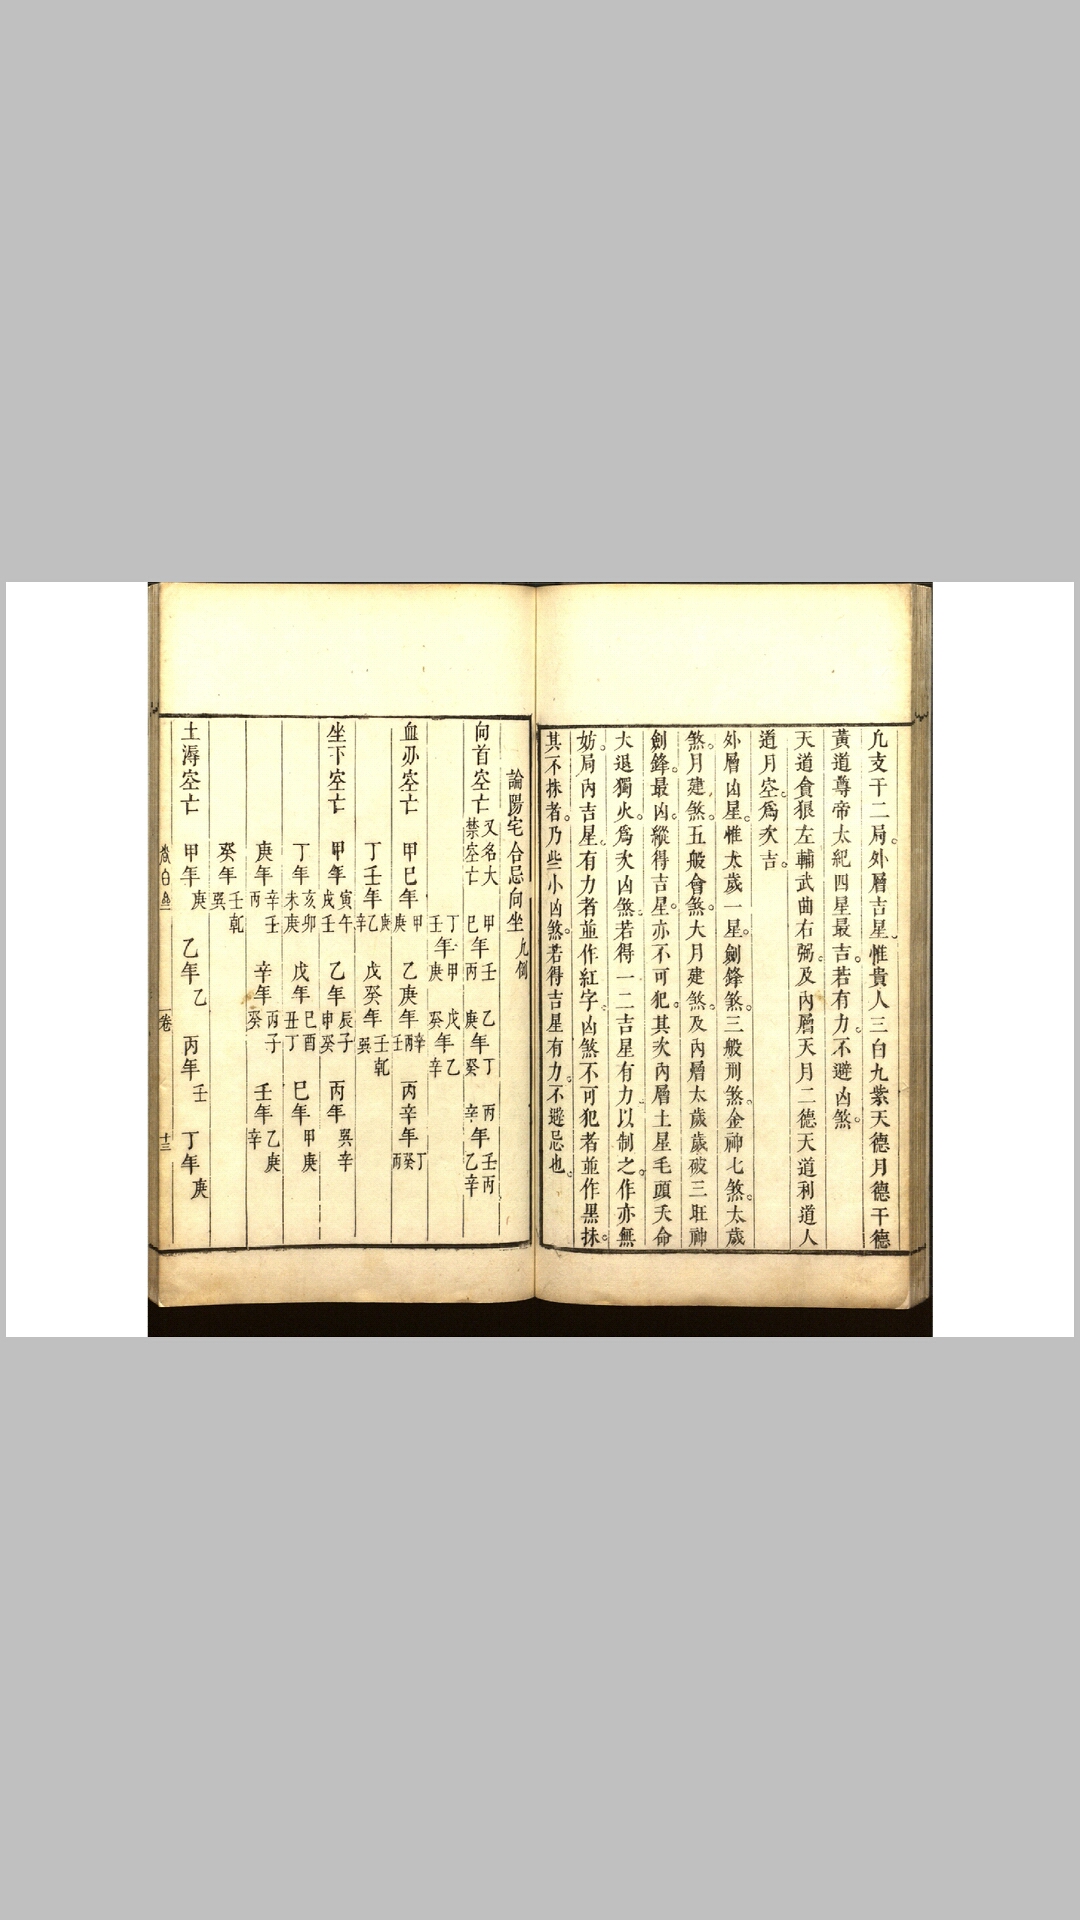 凡支干二局。外層吉星。惟貴人三白九紫天德月德干德
黃道尊帝太紀四星最吉。若有力。不避凶煞。
天道貪狼左輔武曲右弼。及內層天月二德天道利道人
道月空。爲次吉。
外層凶星。惟太歲一星。劍鋒煞。三般刑煞。金神七煞。太歲
煞。月建煞。五般會煞。大月建煞。及內層太歲歲破三旺神
劍鋒。最凶。縱得吉星。亦不可犯。其次內層土星毛頭夭命
大退獨火。爲次凶煞。若得一二吉星有力以制之。作亦無
妨。局內吉星。有力者並作紅字。凶煞不可犯者並作黑抹。
其不抹者。乃些小凶煞。若得吉星有力。不避忌也。
論陽宅合忌向坐九例
向首空亡 又名大禁空亡 甲巳年壬丙 乙庚年丁癸 丙辛年壬丙乙辛
丁壬年甲庚 戊癸年乙辛
血刃空亡 甲巳年甲庚 乙庚年辛丙壬 丙辛年丁癸丙
丁壬年庚乙辛 戊癸年壬乾巽
坐下空亡 甲年寅午戌壬 乙年辰子申癸 丙年巽辛
丁年亥卯未庚 戊年巳酉丑丁 巳年甲庚
庚年辛壬丙 辛年丙子癸 壬年乙庚辛
癸年壬乾巽
土溽空亡 甲年庚 乙年乙 丙年壬 丁年庚
卷 十三